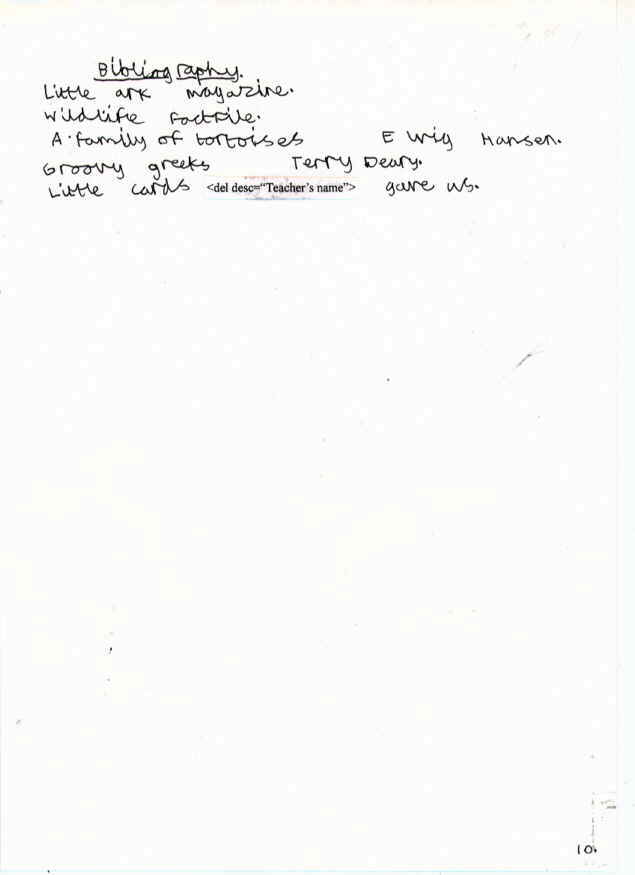 Bibliography.
Little ark magazine.
Wildlife factfile.
A family of tortoises E Wig Hansen.
Groovy greeks Terry Deary.
Little cards <del desc="Teacher's name"> gave us.
10.